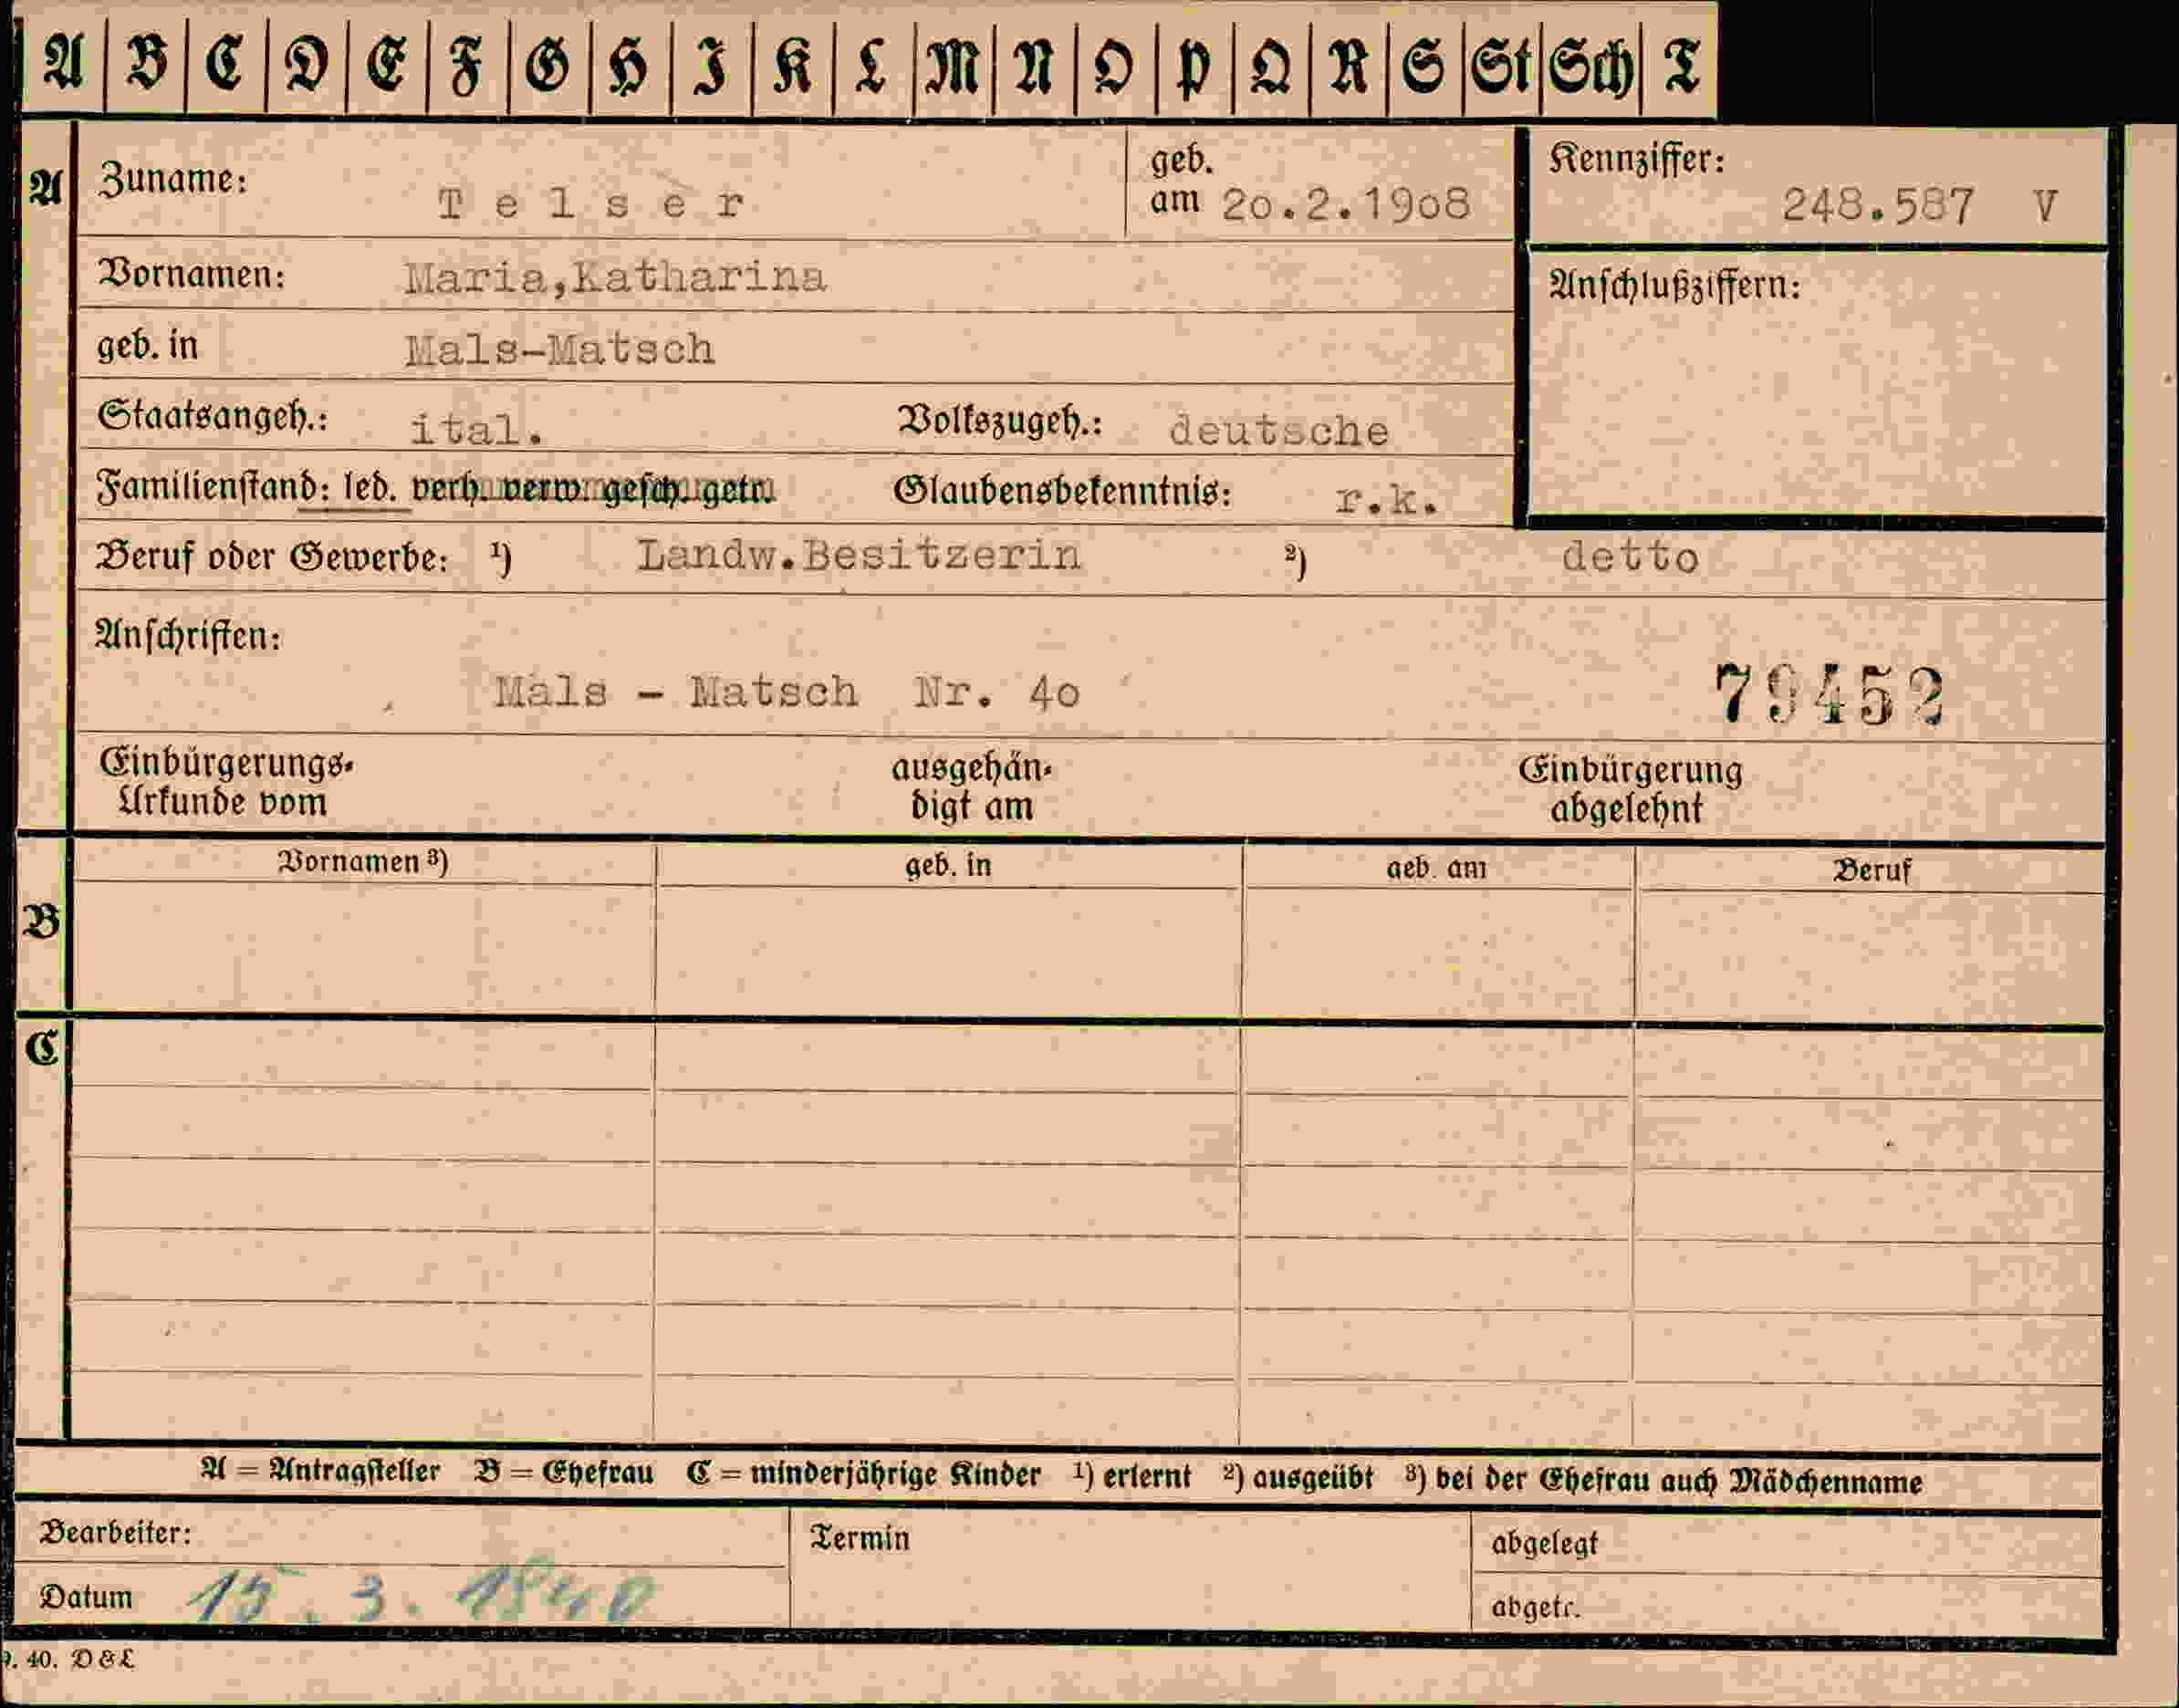 A B C D E F G H I K L M N O P Q R S St Sch T
A Zuname: Telser geb. am 20.2.1908 Kennziffer: 248.587 V
Vornamen: Maria,Katharina Anschlußziffern:
geb. in Mals-Matsch
Staatsangeh.: ital. Volkszugeh.: deutsche
Familienstand: led. verh. verw. gesch. getr. Glaubensbekenntnis: r.k.
Beruf oder Gewerbe: 1) Landw.Besitzerin 2) detto
Anschriften:
Mals - Matsch Nr. 40 79452
Einbürgerungs- ausgehän- Einbürgerung
Urkunde vom digt am abgelehnt
Vornamen 3) geb. in geb. am Beruf
B
C
A = Antragsteller B = Ehefrau C = minderjährige Kinder 1) erlernt 2) ausgeübt 3) bei der Ehefrau auch Mädchenname
Bearbeiter: Termin abgelegt
Datum 15. 3. 1940 abgetr.
40. D&L